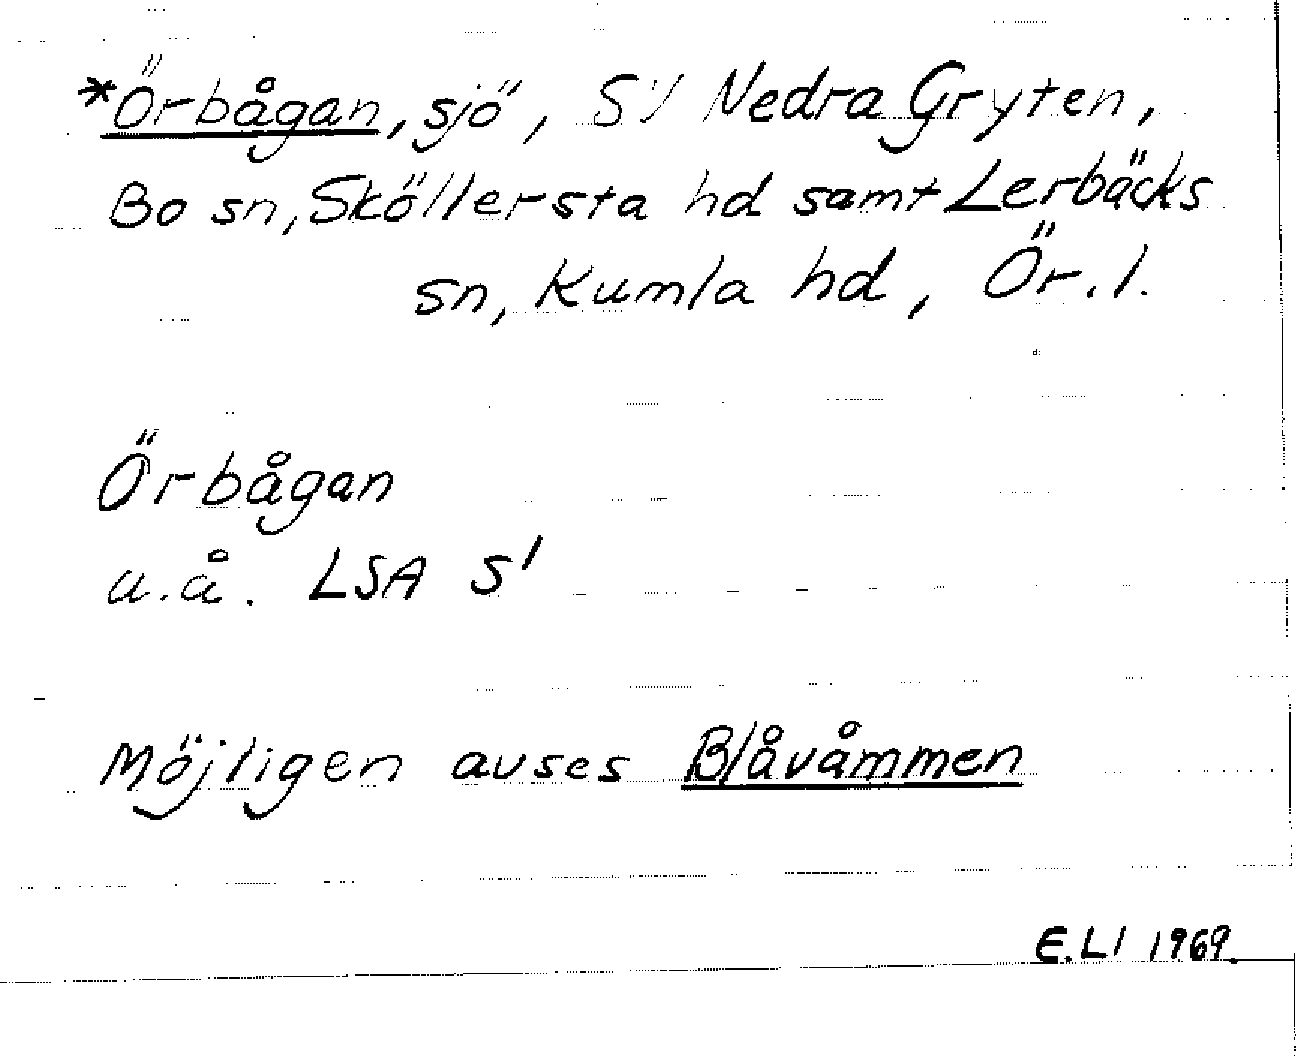 *Örbågan, sjö, S1/ Nedra Gryten,
Bo sn, Sköllersta hd samt Lerbäcks
sn, Kumla hd, Ör. l.
Örbågan
u.å. LSA S1
Möjligen avses Blåvåmmen
E.LI 1969.